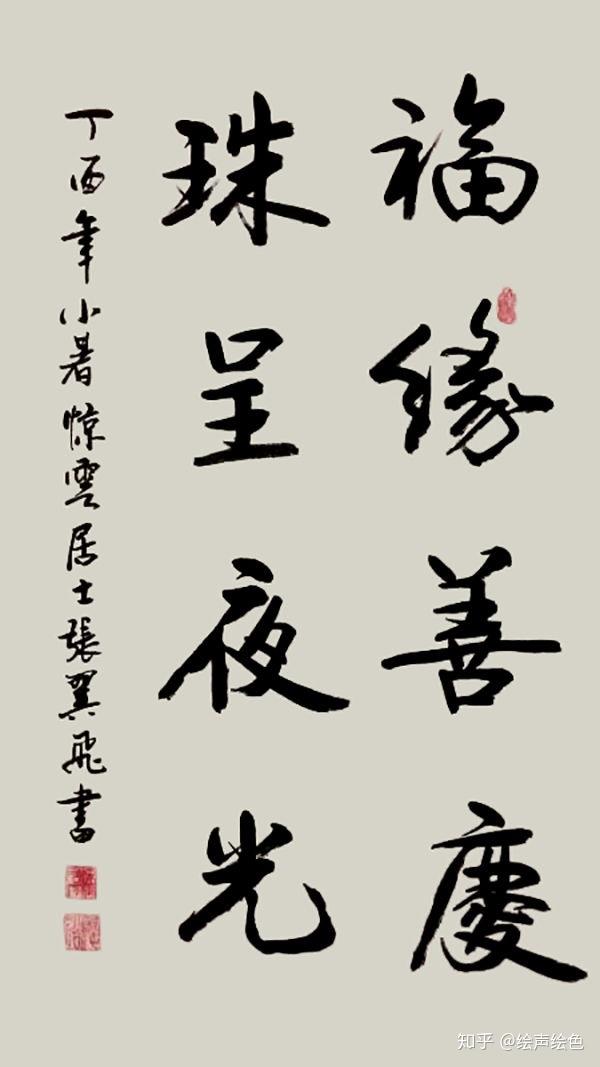 福缘善慶
珠呈夜光
丁酉年小暑惊雲居士張翼飛書
知乎 @绘声绘色